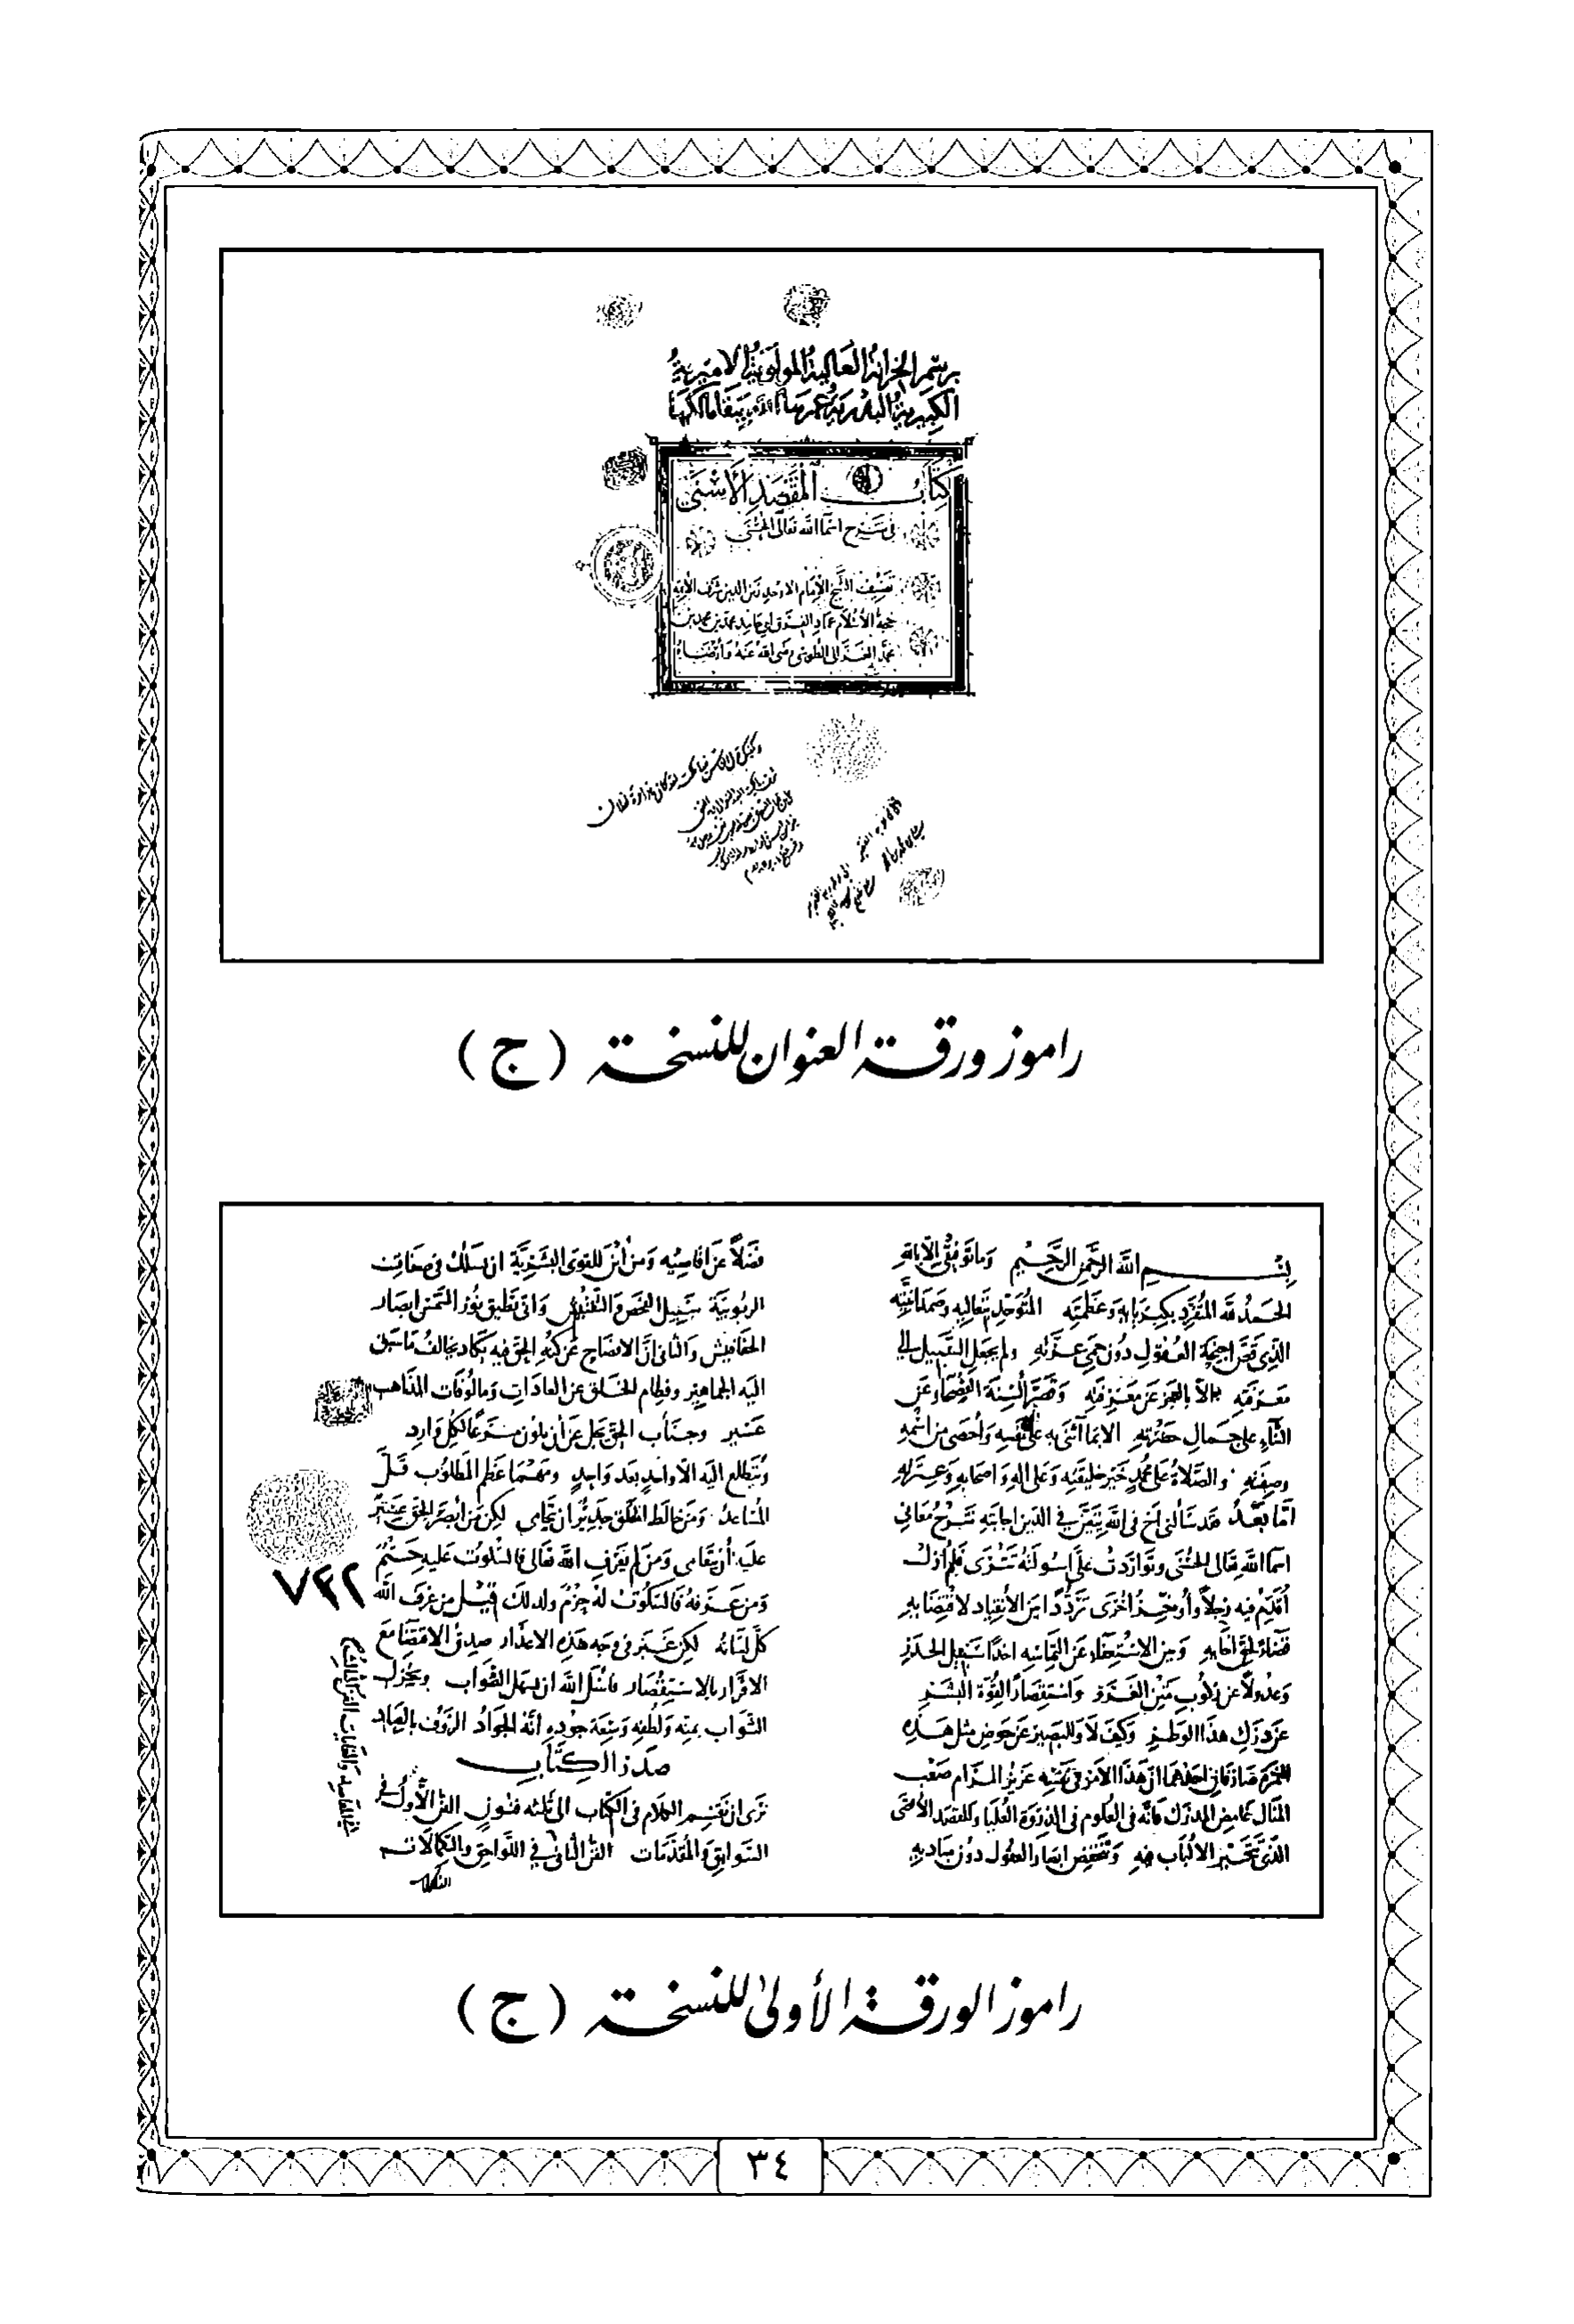 برسم الخزانة العالية المولوية الاميرية
الكبيرية البدرية عمرها الله ببقا مالكها
كتاب المقصد الأسنى
في شرح اسما الله تعالى الحسنى
تصنيف الشيخ الإمام الاوحد زين الدين شرف الأئمه
حجة الإسلام عماد الفرق ابي حامد محمد بن محمد بن
محمد الغزالى الطوسي رضى الله عنه وأرضاه
راموز ورقة العنوان للنسخة (ج)
بسم الله الرحمن الرحيم وما توفيقي الا بالله
الحمد لله المتفرد بكبريايه وعظمته المتوحد بتعاليه وصمدانيته
الذي قص اجنحة العقول دون حمى عزته ولم يجعل السبيل الي
معرفته الا بالعجز عن معرفته وقصر ألسنة الفصحاء عن
الثناء على جمال حضرته الا بما أثنى به على نفسه وأحصى من اسمه
وصفته والصلاة على محمد خير خليقته وعلى اله واصحابه وعترته
امّا بعد فقد سألنى اخ فى الله يتعين في الدين اجابته شرح معاني
اسما الله تعالى الحسنى وتواردت على اسولته تترى فلم أزل
أقدم فيه رجلاً وأوخر أخرى ترددا بين الأنقياد لاقتضايه
قضاء لحق اخايه وبين الاستعفاء عن التماسه اخذا سبيل الحذر
وعدولا عن ركوب متن الغرر واستقصارا لقوة البشر
عن درك هذا الوطر وكيف لا وللبصير عن خوض مثل هذه
الغمرة صارفان احدهما ان هذا الامر في نفسه عزيز المرام صعب
المنال غامض المدرك فانه في العلوم فى الذروة العليا والمقصد الأقصى
الذي تتحير الالباب فيه وتنخفض ابصار العقول دون مباديه
فضلاً عن اقاصيه ومن أين للقوى البشرية ان تسلك فى صفات
الربوبية سبيل الفحص والتفتيش وانى تطيق نور الشمس ابصار
الخفافيش والثانى انّ الافصاح عن كنه الحق فيه يكاد يخالف ما سبق
اليه الجماهير وفطام الخلق عن العادات ومالوفات المذاهب
عسير وجناب الحق يجل عن ان يكون مشرعا لكل وارد
ويتطلع اليه الا واحد بعد واحد ومهما عظم المطلوب قلّ
المساعد ومن خالط الخلق جدير ان يتحامى لكن من أبصر الحق عسر
عليه أن يتعامى ومن لم يعرف الله تعالى فالسكوت عليه حتم
ومن عرفه فالسكوت له جزم ولذلك قيل من عرف الله
كلّ لسانه لكن غبر فى وجه هذه الاعذار صدق الاقتضا مع
الاقرار بالاستقصار فاسئل الله ان يسهل الصواب ويجزل
الثواب بمنه ولطفه وسعة جوده انه الجواد الرؤف بالعباد
صدر الكتاب
نرى ان نقسم الكلام فى الكتاب الى ثلثه فنون الفن الأول في
السوابق والمقدمات الفن الثانى في اللواحق والتكملات
في المقاصد والغايات الفن الثالث
٧٤٢
راموز الورقة الأولىٰ للنسخة (ج)
٣٤